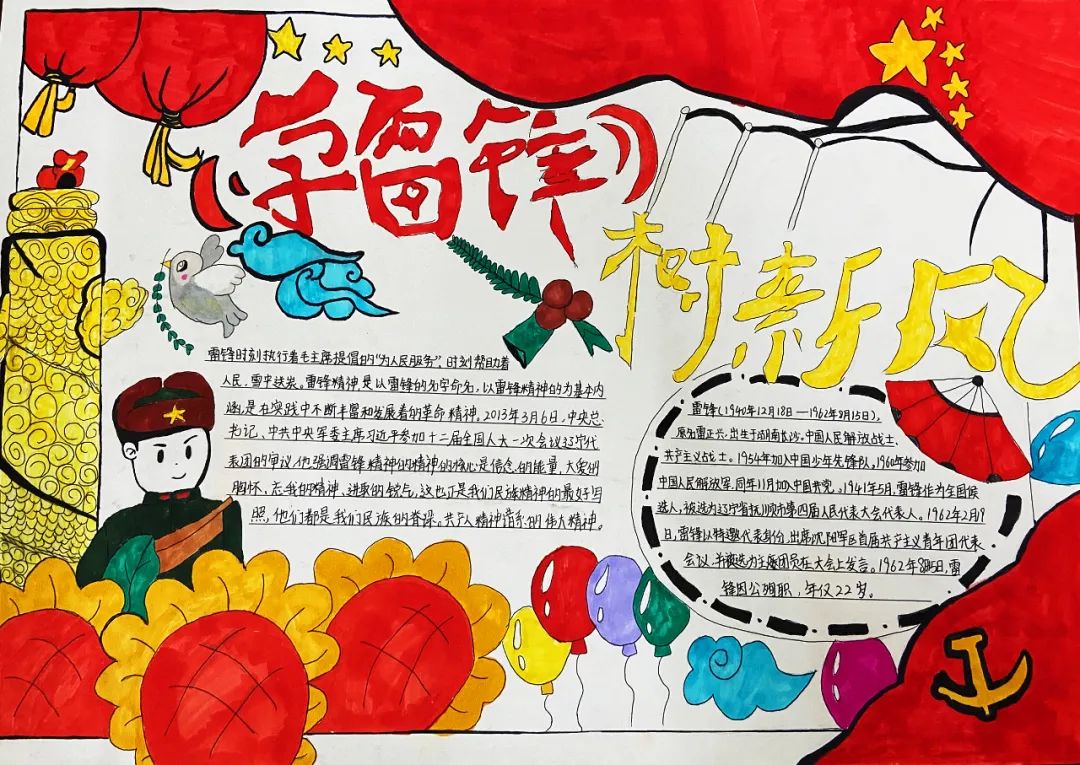 学雷锋
树新风
雷锋时刻执行着毛主席提倡的"为人民服务",时刻帮助着
人民,雪中送炭。雷锋精神是以雷锋的名字命名,以雷锋精神的为基本内
涵,是在实践中不断丰富和发展着的革命精神。2013年3月6日,中央总
书记、中共中央军委主席习近平参加十二届全国人大一次会议辽宁代
表团的审议他强调雷锋精神的精神的核心是信念的能量,大爱的
胸怀、忘我的精神,进取的锐气,这也正是我们民族精神的最好写
照,他们都是我们民族的脊梁。共产人精神谱系的伟大精神。
雷锋(1940年12月18日—1962年8月15日),
原名雷正兴,出生于湖南长沙,中国人民解放战士、
共产主义战士。1954年加入中国少年先锋队,1960年参加
中国人民解放军,同年11月加入中国共党。1941年5月,雷锋作为全国候
选人,被选为辽宁省抚顺市第四届人民代表大会代表人。1962年2月19
日,雷锋以特邀代表身份,出席沈阳军区首届共产主义青年团代表
会议,并被选为主席团员在大会上发言。1962年8月5日,雷
锋因公殉职,年仅22岁。